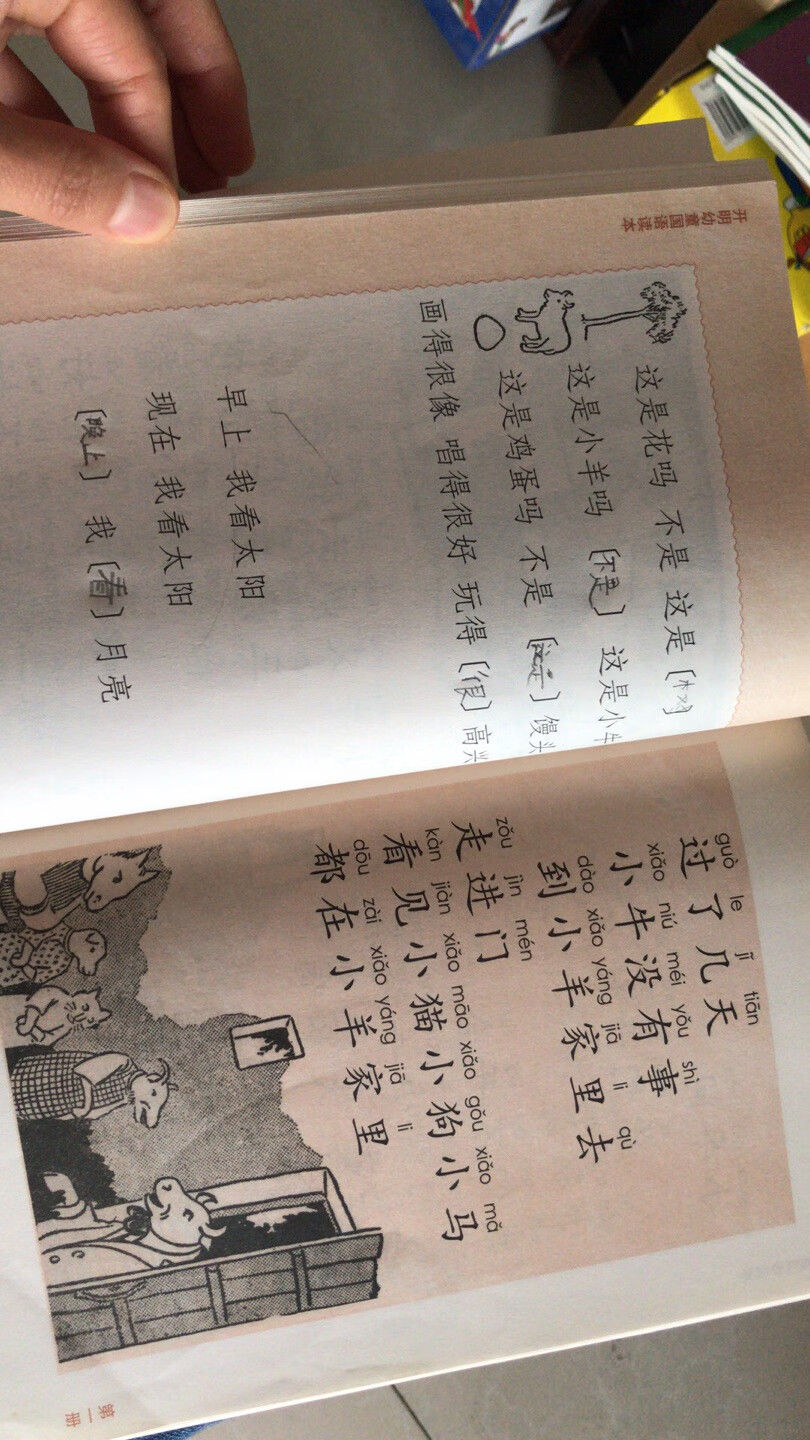 开明幼童国语读本
这是花吗 不是 这是〔木又〕
这是小羊吗 〔不是〕 这是小牛
这是鸡蛋吗 不是 〔这是〕馒头
画得很像 唱得很好 玩得〔很〕高兴
早上 我看太阳
现在 我看太阳
〔晚上〕 我〔看〕月亮
guò le jǐ tiān
过了几天
xiǎo niú méi yǒu shì
小牛没有事
dào xiǎo yáng jiā li qù
到小羊家里去
zǒu jìn mén
走进门
kàn jiàn xiǎo māo xiǎo gǒu xiǎo mǎ
看见小猫小狗小马
dōu zài xiǎo yáng jiā li
都在小羊家里
第一册